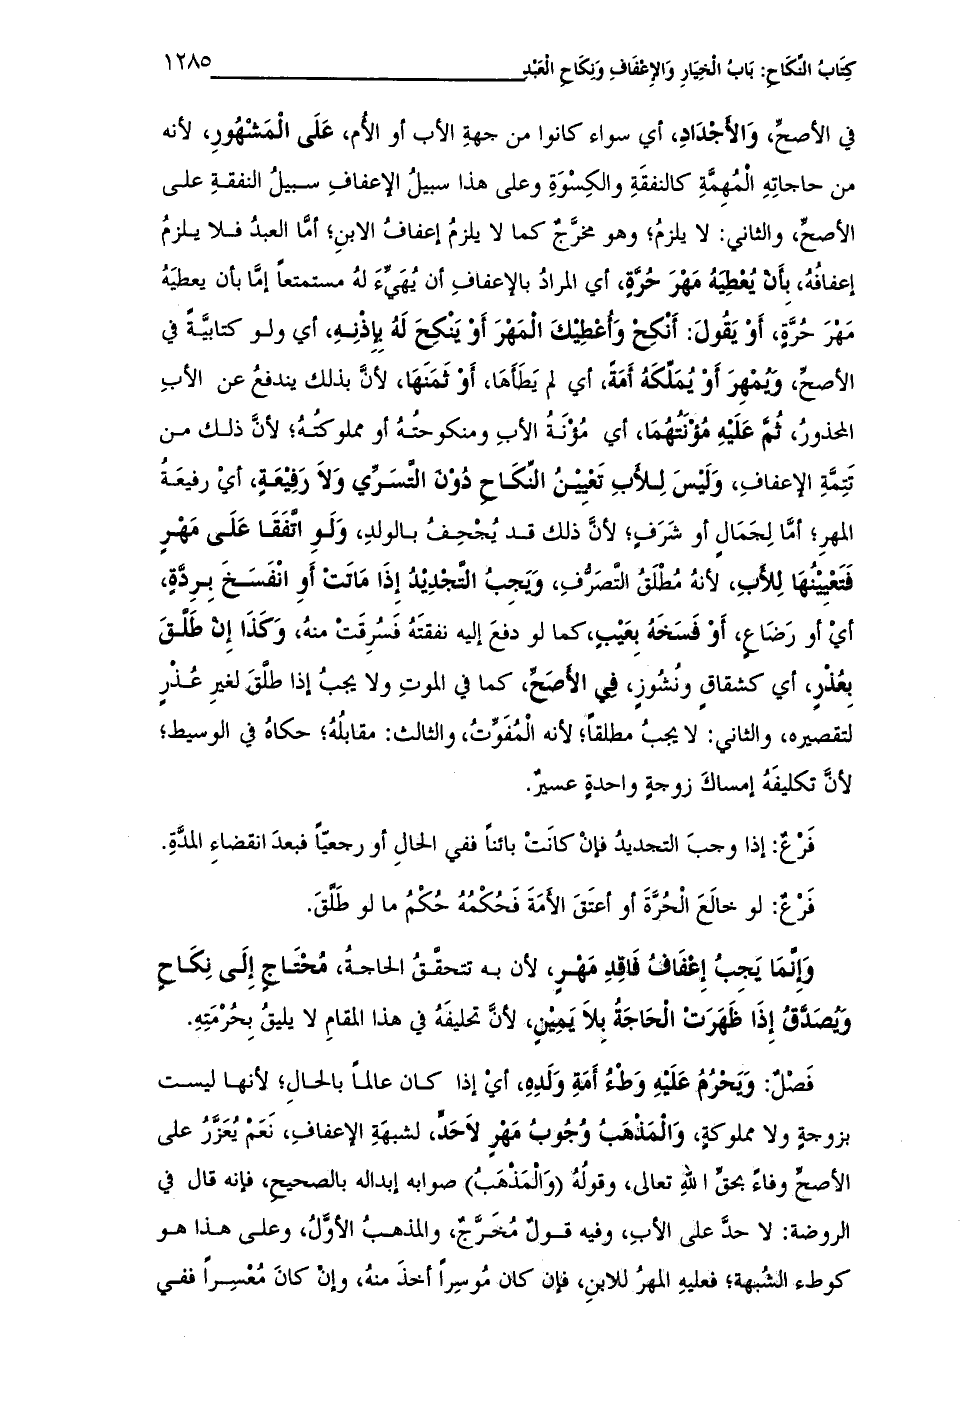 كِتَابُ النِّكَاحِ: بَابُ الْخِيَارِ وَالإِعْفَافِ وَنِكَاحِ الْعَبْدِ ١٢٨٥
في الأصحِّ، وَالأَجْدَادِ، أي سواء كانوا من جهةِ الأب أو الأُم، عَلَى الْمَشْهُورِ، لأنه
من حاجاتِهِ الْمُهِمَّةِ كالنفقَةِ والكِسْوَةِ وعلى هذا سبيلُ الإعفافِ سبيلُ النفقةِ على
الأصحِّ، والثاني: لا يلزمُ؛ وهو مخرَّجٌ كما لا يلزمُ إعفافُ الابنِ؛ أمَّا العبدُ فلا يلزمُ
إعفافُهُ، بِأَنْ يُعْطِيَهُ مَهْرَ حُرَّةٍ، أي المرادُ بالإعفافِ أن يُهَيِّءَ لهُ مستمتعاً إمَّا بأن يعطيَهُ
مَهْرَ حُرَّةٍ، أَوْ يَقُولَ: أَنْكِحْ وَأُعْطِيْكَ الْمَهْرَ أَوْ يَنْكِحَ لَهُ بِإِذْنِهِ، أي ولو كتابيَّةً في
الأصحِّ، وَيُمْهِرَ أَوْ يُمَلِّكَهُ أَمَةً، أي لم يَطَأَهَا، أَوْ ثَمَنَهَا، لأنَّ بذلك يندفعُ عن الأبِ
المحذورُ، ثُمَّ عَلَيْهِ مُؤْنَتُهُمَا، أي مُؤْنَةُ الأبِ ومنكوحتُهُ أو مملوكتُهُ؛ لأنَّ ذلك من
تَتِمَّةِ الإعفافِ، وَلَيْسَ لِلأَبِ تَعْيِيْنُ النِّكَاحِ دُوْنَ التَّسَرِّي وَلاَ رَفِيْعَةٍ، أيْ رفيعَةُ
المهرِ؛ أمَّا لِجَمَالٍ أو شَرَفٍ؛ لأنَّ ذلك قد يُجْحِفُ بالولدِ، وَلَوِ اتَّفَقَا عَلَى مَهْرٍ
فَتَعْيِيْنُهَا لِلأَبِ، لأنهُ مُطْلَقُ التَّصَرُّفِ، وَيَجِبُ التَّجْدِيْدُ إِذَا مَاتَتْ أَوِ انْفَسَخَ بِرِدَّةٍ،
أيْ أو رَضَاعٍ، أَوْ فَسَخَهُ بِعَيْبٍ، كما لو دفعَ إليه نفقتَهُ فَسُرِقَتْ منهُ، وَكَذَا إِنْ طَلَّقَ
بِعُذْرٍ، أي كشقاقٍ ونُشُوزٍ، فِي الأَصَحِّ، كما في الموتِ ولا يجبُ إذا طلَّقَ لغيرِ عُذْرٍ
لتقصيره، والثاني: لا يجبُ مطلقاً؛ لأنه الْمُفَوِّتُ، والثالث: مقابلُهُ؛ حكاهُ في الوسيط؛
لأنَّ تكليفَهُ إمساكَ زوجةٍ واحدةٍ عسيرٌ.
فَرْعٌ: إذا وجبَ التجديدُ فإنْ كانَتْ بائناً ففي الحالِ أو رجعيّاً فبعدَ انقضاءِ المدَّةِ.
فَرْعٌ: لو خالَعَ الْحُرَّةَ أو أعتَقَ الأَمَةَ فَحُكْمُهُ حُكْمُ ما لو طَلَّقَ.
وَإِنَّمَا يَجِبُ إِعْفَافُ فَاقِدِ مَهْرٍ، لأن به تتحقَّقُ الحاجةُ، مُحْتَاجٍ إِلَى نِكَاحٍ
وَيُصَدَّقُ إِذَا ظَهَرَتْ الْحَاجَةُ بِلاَ يَمِيْنٍ، لأنَّ تحليفَهُ في هذا المقامِ لا يليقُ بِحُرْمَتِهِ.
فَصْلٌ: وَيَحْرُمُ عَلَيْهِ وَطْءُ أَمَةِ وَلَدِهِ، أيْ إذا كان عالماً بالحالِ؛ لأنها ليست
بزوجةٍ ولا مملوكةٍ، وَالْمَذْهَبُ وُجُوبُ مَهْرٍ لاَحَدٍّ، لشبهَةِ الإعفافِ، نَعَمْ يُعَزَّرُ على
الأصحِّ وفاءً بحقِّ اللهِ تعالى، وقولُهُ (وَالْمَذْهَبُ) صوابه إبداله بالصحيحِ، فإنه قال في
الروضة: لا حدَّ على الأبِ، وفيه قولٌ مُخَرَّجٌ، والمذهبُ الأوَّلُ، وعلى هذا هو
كوطء الشُّبهة؛ فعليهِ المهرُ للابنِ، فإن كان مُوسِراً أخذَ منهُ، وإنْ كانَ مُعْسِراً ففي